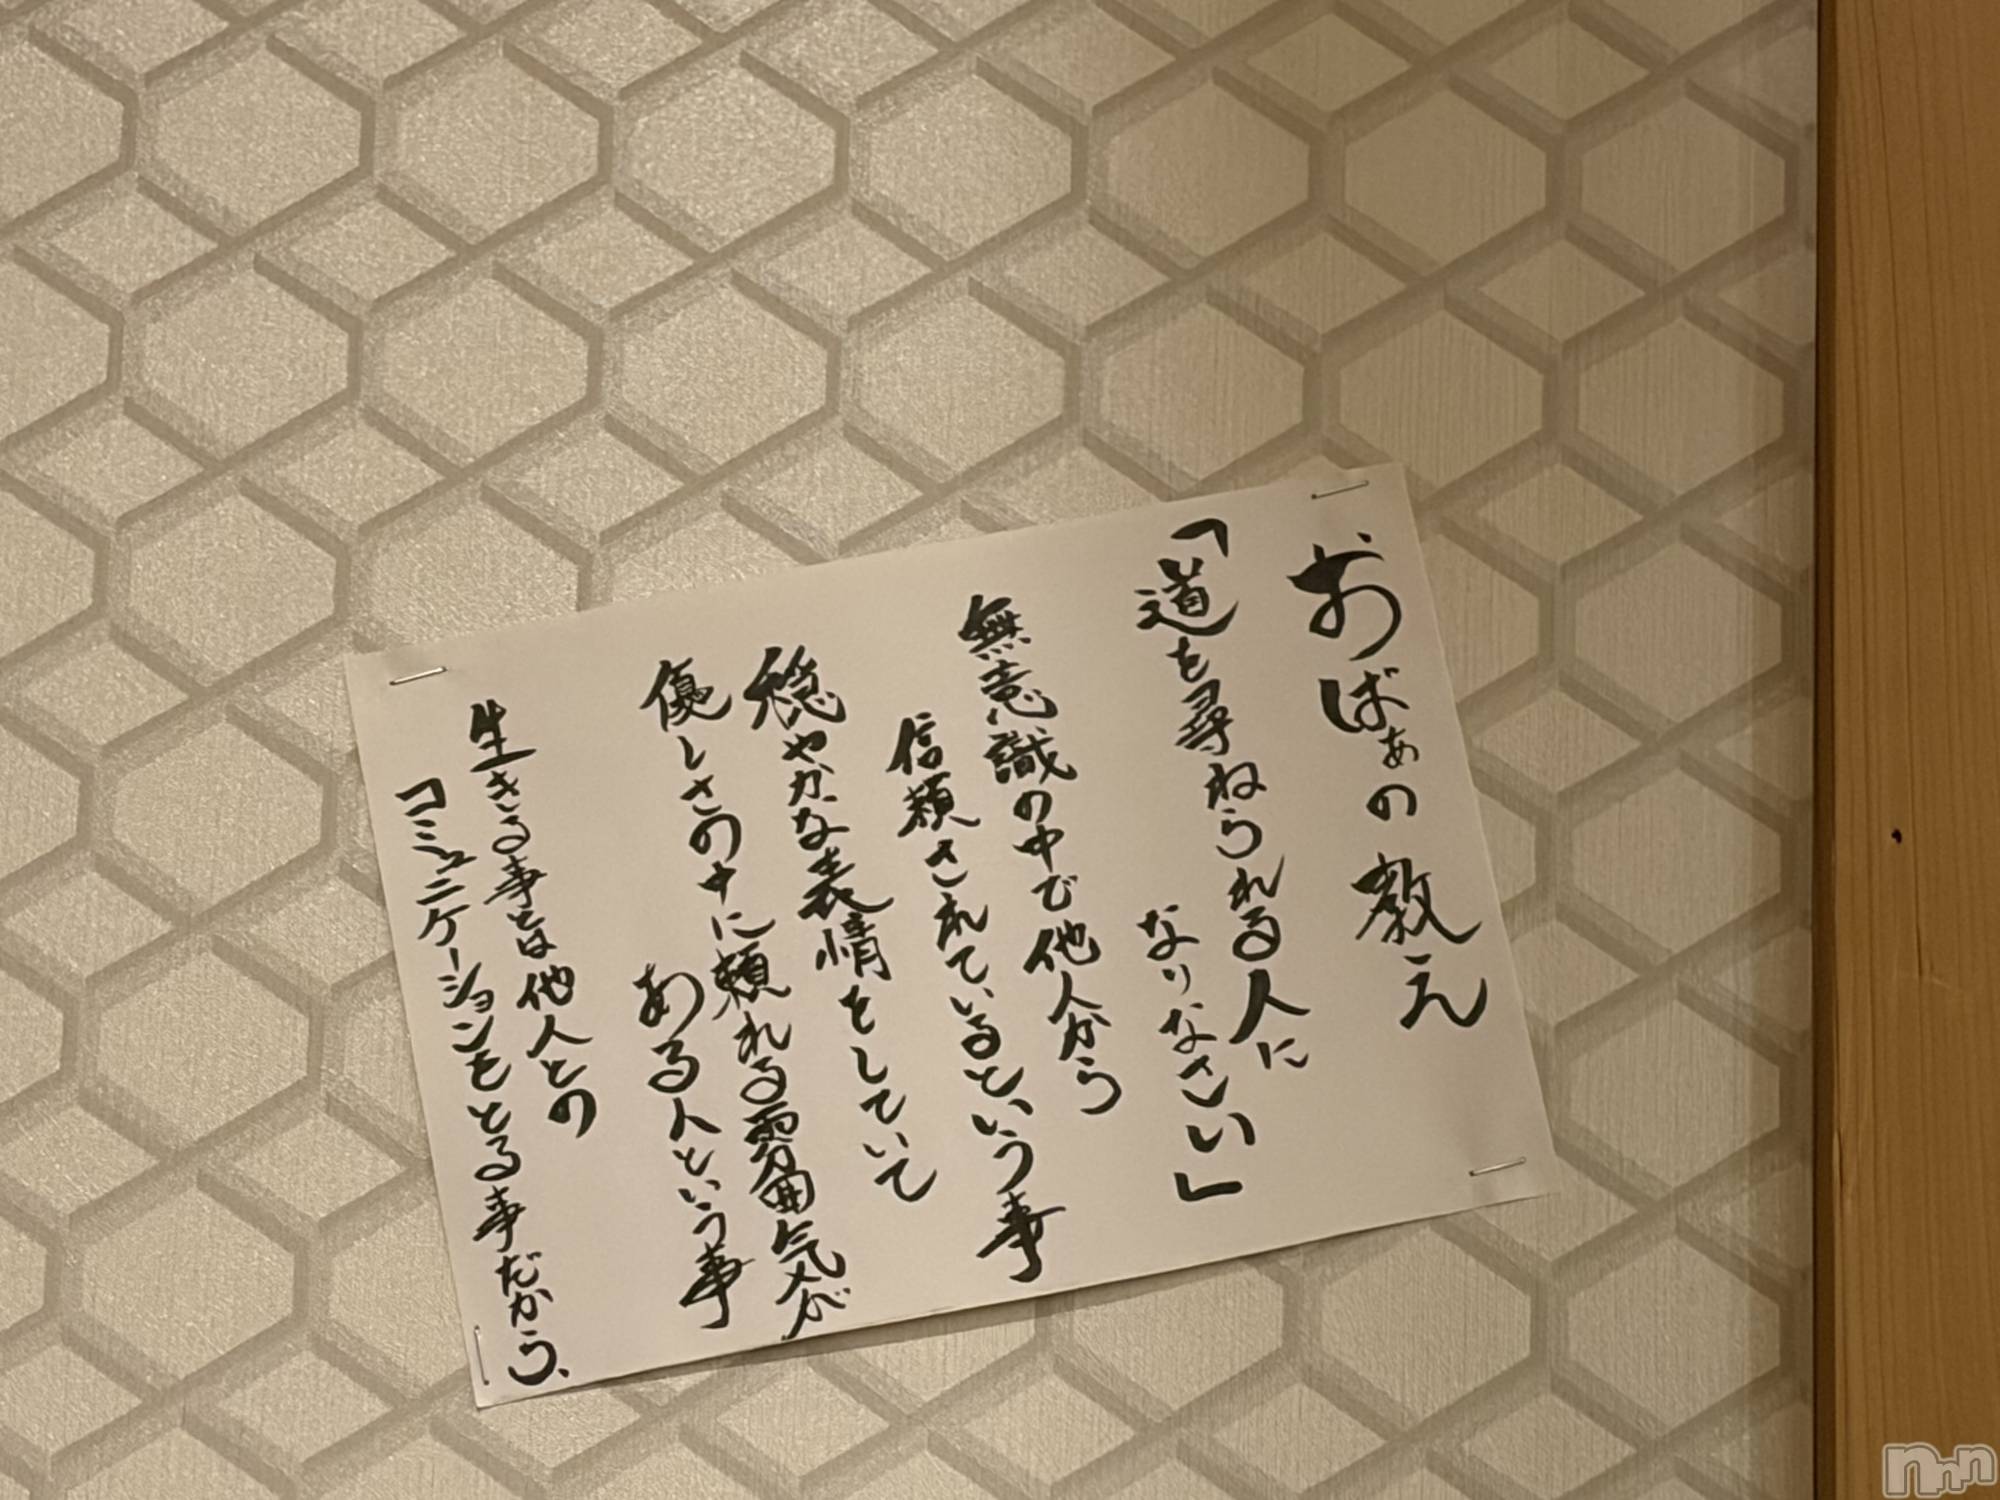 おばぁの教え
「道を尋ねられる人に
なりなさい」
無意識の中で他人から
信頼されているという事
穏やかな表情をしていて
優しさの中に頼れる雰囲気が
ある人という事
生きる事とは他人との
コミュニケーションをとる事だから、
nnn